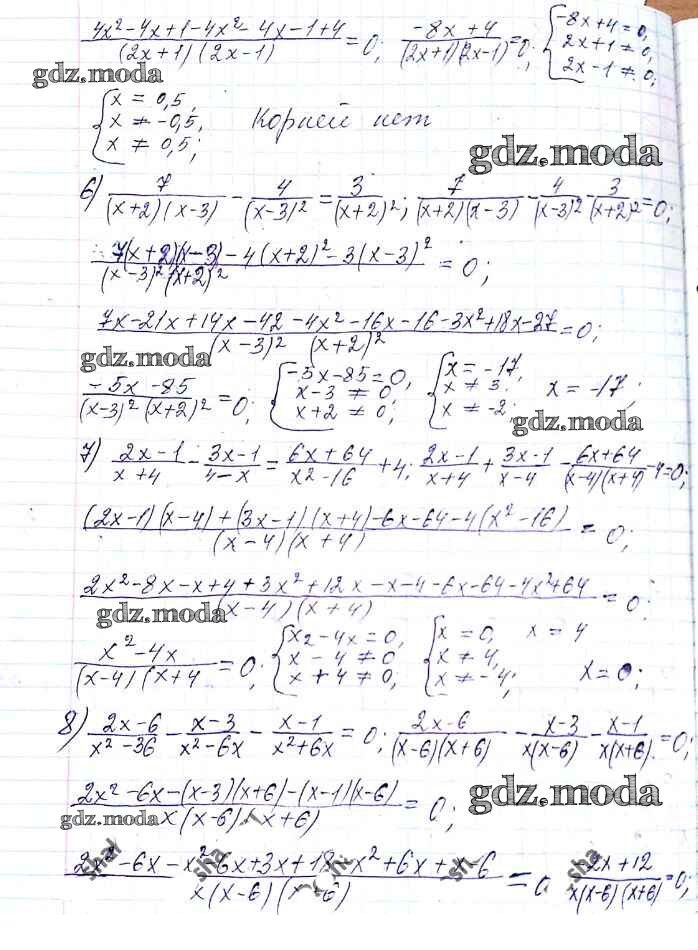 (4x² - 4x + 1 - 4x² - 4x - 1 + 4)/((2x+1)(2x-1)) = 0; (-8x + 4)/((2x+1)(2x-1)) = 0; { -8x + 4 = 0, 2x + 1 ≠ 0, 2x - 1 ≠ 0;
gdz.moda
{ x = 0,5; x ≠ -0,5, x ≠ 0,5; Корней нет
gdz.moda
6) 7/((x+2)(x-3)) - 4/(x-3)² = 3/(x+2)²; 7/((x+2)(x-3)) - 4/(x-3)² - 3/(x+2)² = 0;
(7(x+2)(x-3) - 4(x+2)² - 3(x-3)²)/((x-3)²(x+2)²) = 0;
(7x - 21x + 14x - 42 - 4x² - 16x - 16 - 3x² + 18x - 27)/((x-3)² (x+2)²) = 0;
gdz.moda
(-5x - 85)/((x-3)²(x+2)²) = 0; { -5x - 85 = 0, x - 3 ≠ 0, x + 2 ≠ 0; { x = -17, x ≠ 3, x ≠ -2; x = -17;
gdz.moda
7) (2x-1)/(x+4) - (3x-1)/(4-x) = (6x+64)/(x²-16) + 4; (2x-1)/(x+4) + (3x-1)/(x-4) - (6x+64)/((x-4)(x+4)) - 4 = 0;
((2x-1)(x-4) + (3x-1)(x+4) - 6x - 64 - 4(x²-16))/((x-4)(x+4)) = 0;
(2x² - 8x - x + 4 + 3x² + 12x - x - 4 - 6x - 64 - 4x² + 64)/((x-4)(x+4)) = 0;
gdz.moda
(x² - 4x)/((x-4)(x+4 = 0; { x2 - 4x = 0, x - 4 ≠ 0, x + 4 ≠ 0; { x = 0, x = 4 x ≠ 4, x ≠ -4; x = 0;
8) (2x-6)/(x²-36) - (x-3)/(x²-6x) - (x-1)/(x²+6x) = 0; (2x-6)/((x-6)(x+6)) - (x-3)/(x(x-6)) - (x-1)/(x(x+6)) = 0;
(2x² - 6x - (x-3)(x+6) - (x-1)(x-6))/(x(x-6)(x+6)) = 0;
gdz.moda
gdz.moda
(2x² - 6x - x² - 6x + 3x + 18 - x² + 6x + x - 6)/(x(x-6)(x-6)) = 0 (-2x+12)/(x(x-6)(x+6)) = 0;